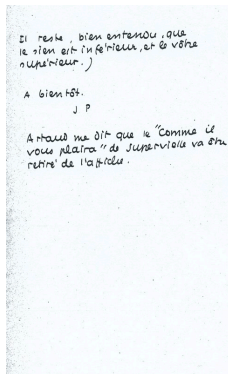 Il reste, bien entendu, que
le sien est inférieur, et le vôtre
supérieur.)
A bientôt.
J P
Artaud me dit que le "Comme il
vous plaira" de Supervielle va être
retiré de l'affiche.